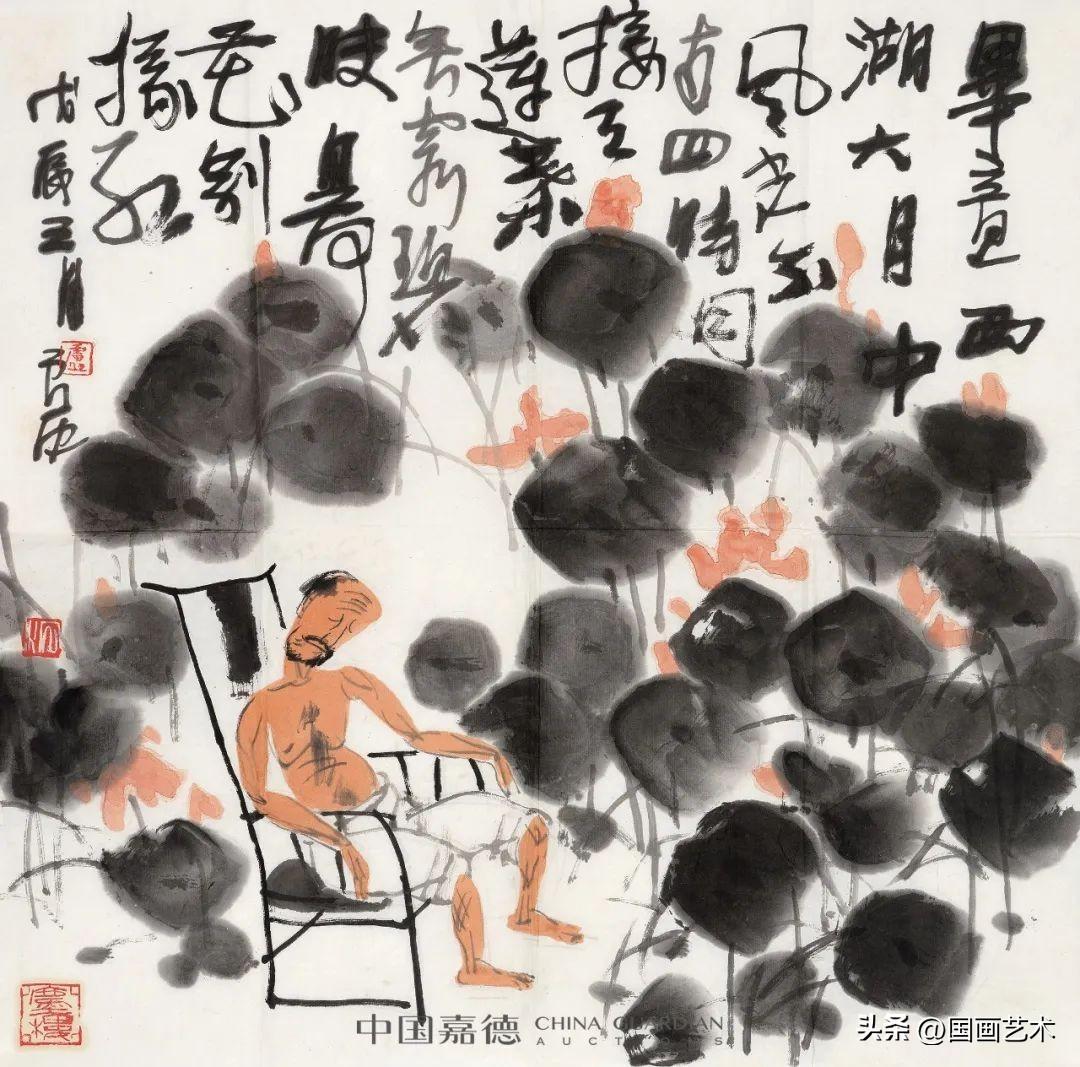 畢竟西
湖六月中
風光不
与四時同
接天
蓮葉
無窮碧
映日荷
花别
樣紅
戊辰五月
中国嘉德 CHINA GUARDIAN
AUCTIONS
头条 @国画艺术